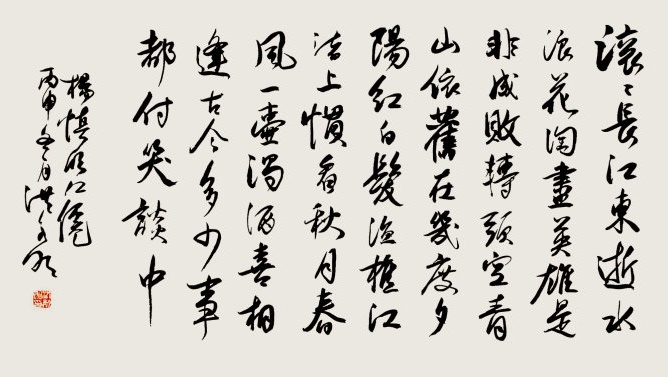 滚〻長江東逝水
浪花淘盡英雄是
非成敗轉頭空青
山依舊在幾度夕
陽紅白髮漁樵江
渚上慣看秋月春
風一壺濁酒喜相
逢古今多少事
都付笑談中
楊慎臨江仙
丙申冬月洪